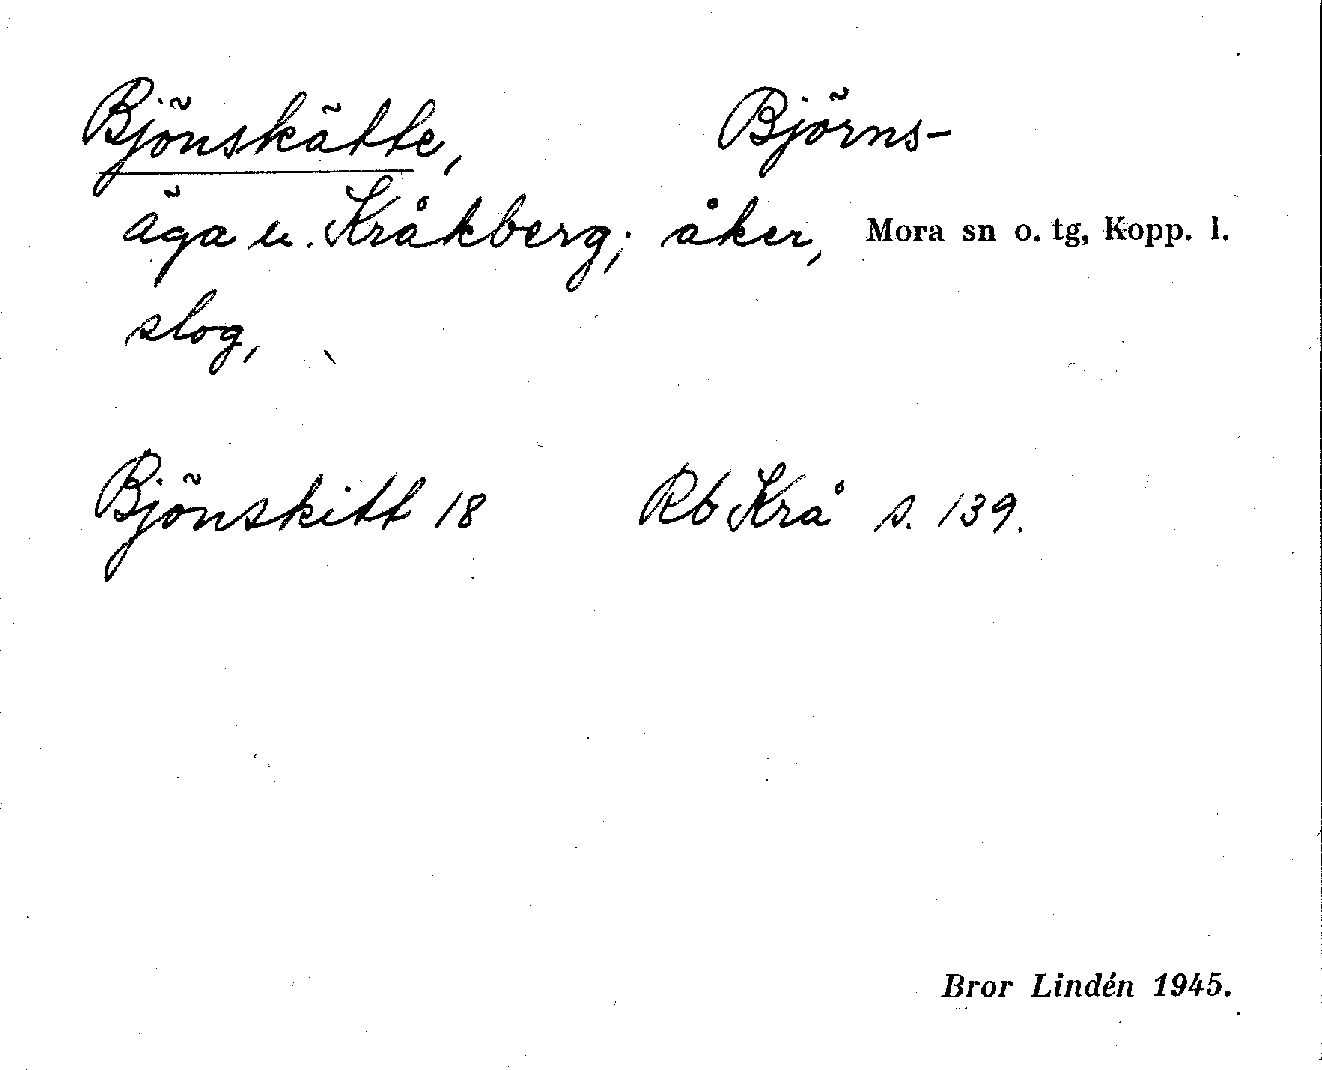 Bjönskätte, Björns-
äga u. Kråkberg; åker, Mora sn o. tg, Kopp. l.
slog,
Bjönskitt 18 Rb Krå s. 139.
Bror Lindén 1945.